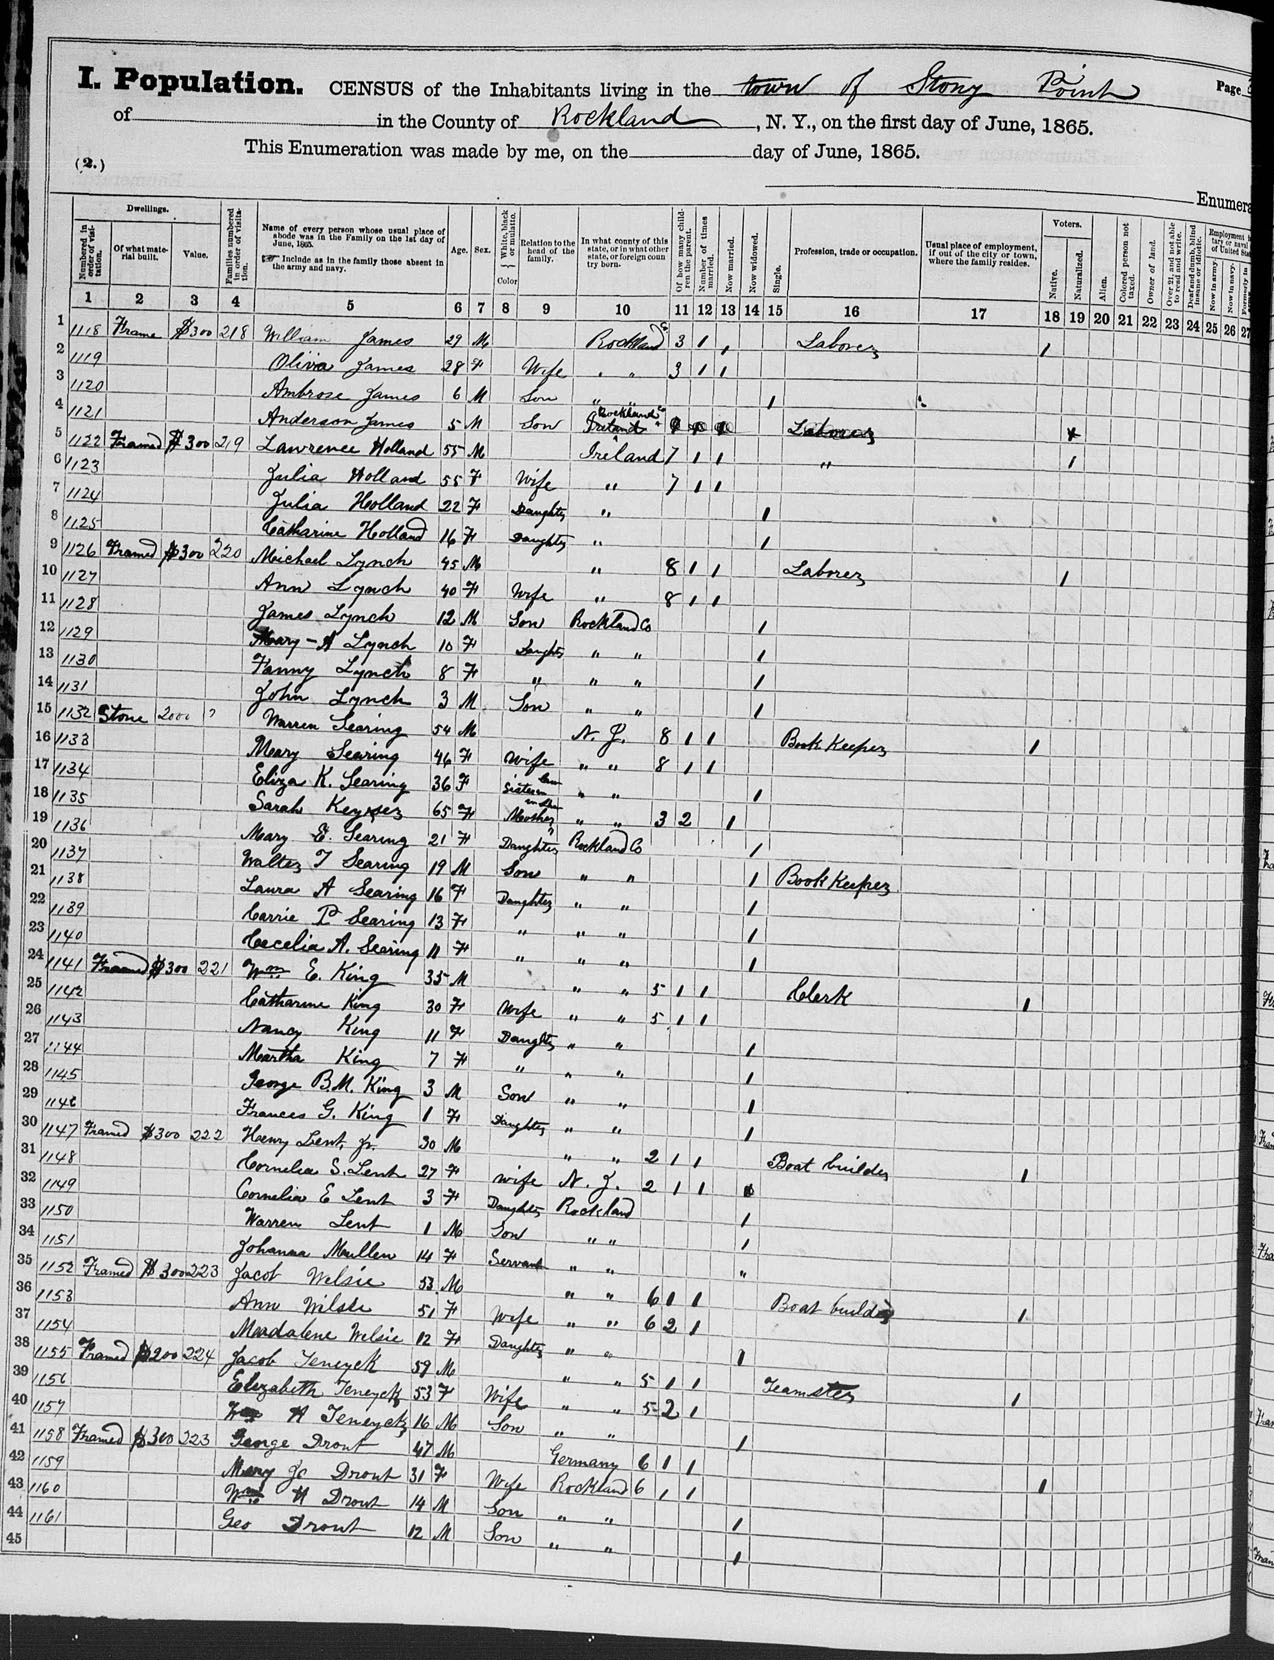 I. Population. CENSUS of the Inhabitants living in the town of Stony Point Page
of in the County of Rockland, N. Y., on the first day of June, 1865.
This Enumeration was made by me, on the day of June, 1865.
(2.)
Enumera
Dwellings.
Numbered in order of visitation.
Of what material built.
Value.
Families numbered in order of visitation.
Name of every person whose usual place of abode was in the Family on the 1st day of June, 1865.
Include as in the family those absent in the army and navy.
Age.
Sex.
White, black or mulatto.
Color
Relation to the head of the family.
In what county of this state, or in what other state, or foreign country born.
Of how many children the parent.
Number of times married.
Now married.
Now widowed.
Single.
Profession, trade or occupation.
Usual place of employment, if out of the city or town, where the family resides.
Voters.
Native.
Naturalized.
Alien.
Colored person not taxed.
Owner of land.
Over 21, and not able to read and write.
Deaf and dumb, blind insane or idiotic.
Now in army.
Now in navy.
1 2 3 4 5 6 7 8 9 10 11 12 13 14 15 16 17 18 19 20 21 22 23 24 25 26 27
1 1118 Frame $300 218 William James 29 M Rockland Co 3 1 1 Laborer 1
2 1119 Oliva James 28 F Wife " " 3 1 1
3 1120 Ambrose James 6 M Son " " 1
4 1121 Anderson James 5 M Son Rockland Co Ireland Laborer
5 1122 Framed $300 219 Lawrence Holland 55 M Ireland 7 1 1 " 1
6 1123 Julia Holland 55 F Wife " 7 1 1
7 1124 Julia Holland 22 F Daughter " 1
8 1125 Catharine Holland 16 F Daughter " 1
9 1126 Framed $300 220 Michael Lynch 45 M " 8 1 1 Laborer 1
10 1127 Ann Lynch 40 F Wife " 8 1 1
11 1128 James Lynch 12 M Son Rockland Co 1
12 1129 Mary-A Lynch 10 F Daughter " " 1
13 1130 Fanny Lynch 8 F " " " 1
14 1131 John Lynch 3 M Son " " 1
15 1132 Stone 2000 ? Warren Searing 54 M N. J. 8 1 1 Book Keeper 1
16 1133 Mary Searing 46 F Wife " " 8 1 1
17 1134 Eliza K. Searing 36 F Sister in law " " 1
18 1135 Sarah 65 F Mother " " 3 2 1
19 1136 Mary E. Searing 21 F Daughter Rockland Co 1
20 1137 Walter T Searing 19 M Son " " 1 Book Keeper
21 1138 Laura A Searing 16 F Daughter " " 1
22 1139 Carrie P Searing 13 F " " " 1
23 1140 Cecelia A. Searing 11 F " " " 1
24 1141 Framed $300 221 Wm. E. King 35 M " " 5 1 1 Clerk 1
25 1142 Catharine King 30 F Wife " " 5 1 1
26 1143 Nancy King 11 F Daughter " " 1
27 1144 Martha King 7 F " " " 1
28 1145 George B.M. King 3 M Son " " 1
29 1146 Frances G. King 1 F Daughter " " 1
30 1147 Framed $300 222 Henry Lent, Jr. 30 M " " 2 1 1 Boat builder 1
31 1148 Cornelia S. Lent 27 F Wife N. J. 2 1 1
32 1149 Cornelia E Lent 3 F Daughter Rockland 1
33 1150 Warren Lent 1 M Son " " 1
34 1151 Johanna Mullen 14 F Servant " " "
35 1152 Framed $300 223 Jacob Welsie 53 M " " 6 1 1 Boat builder 1
36 1153 Ann Wilsie 51 F Wife " " 6 2 1
37 1154 Madalene Welsie 12 F Daughter " " 1
38 1155 Framed $200 224 Jacob Teneyck 59 M " " 5 1 1 Teamster 1
39 1156 Elizabeth Teneyck 53 F Wife " " 5 2 1
40 1157 Wm A Teneyck 16 M Son " " 1
41 1158 Framed $300 223 George Drout 47 M Germany 6 1 1 1
42 1159 Mary Drout 31 F Wife Rockland 6 1 1
43 1160 Wm. H Drout 14 M Son " " 1
44 1161 Geo Drout 12 M Son " " 1
45